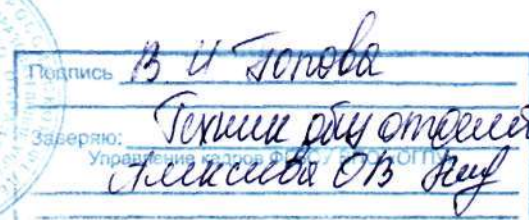 Подпись В И Попова
Заверяю: Техник общ отдела
Управление кадров ФГБОУ ВПО
Алексеева ОВ